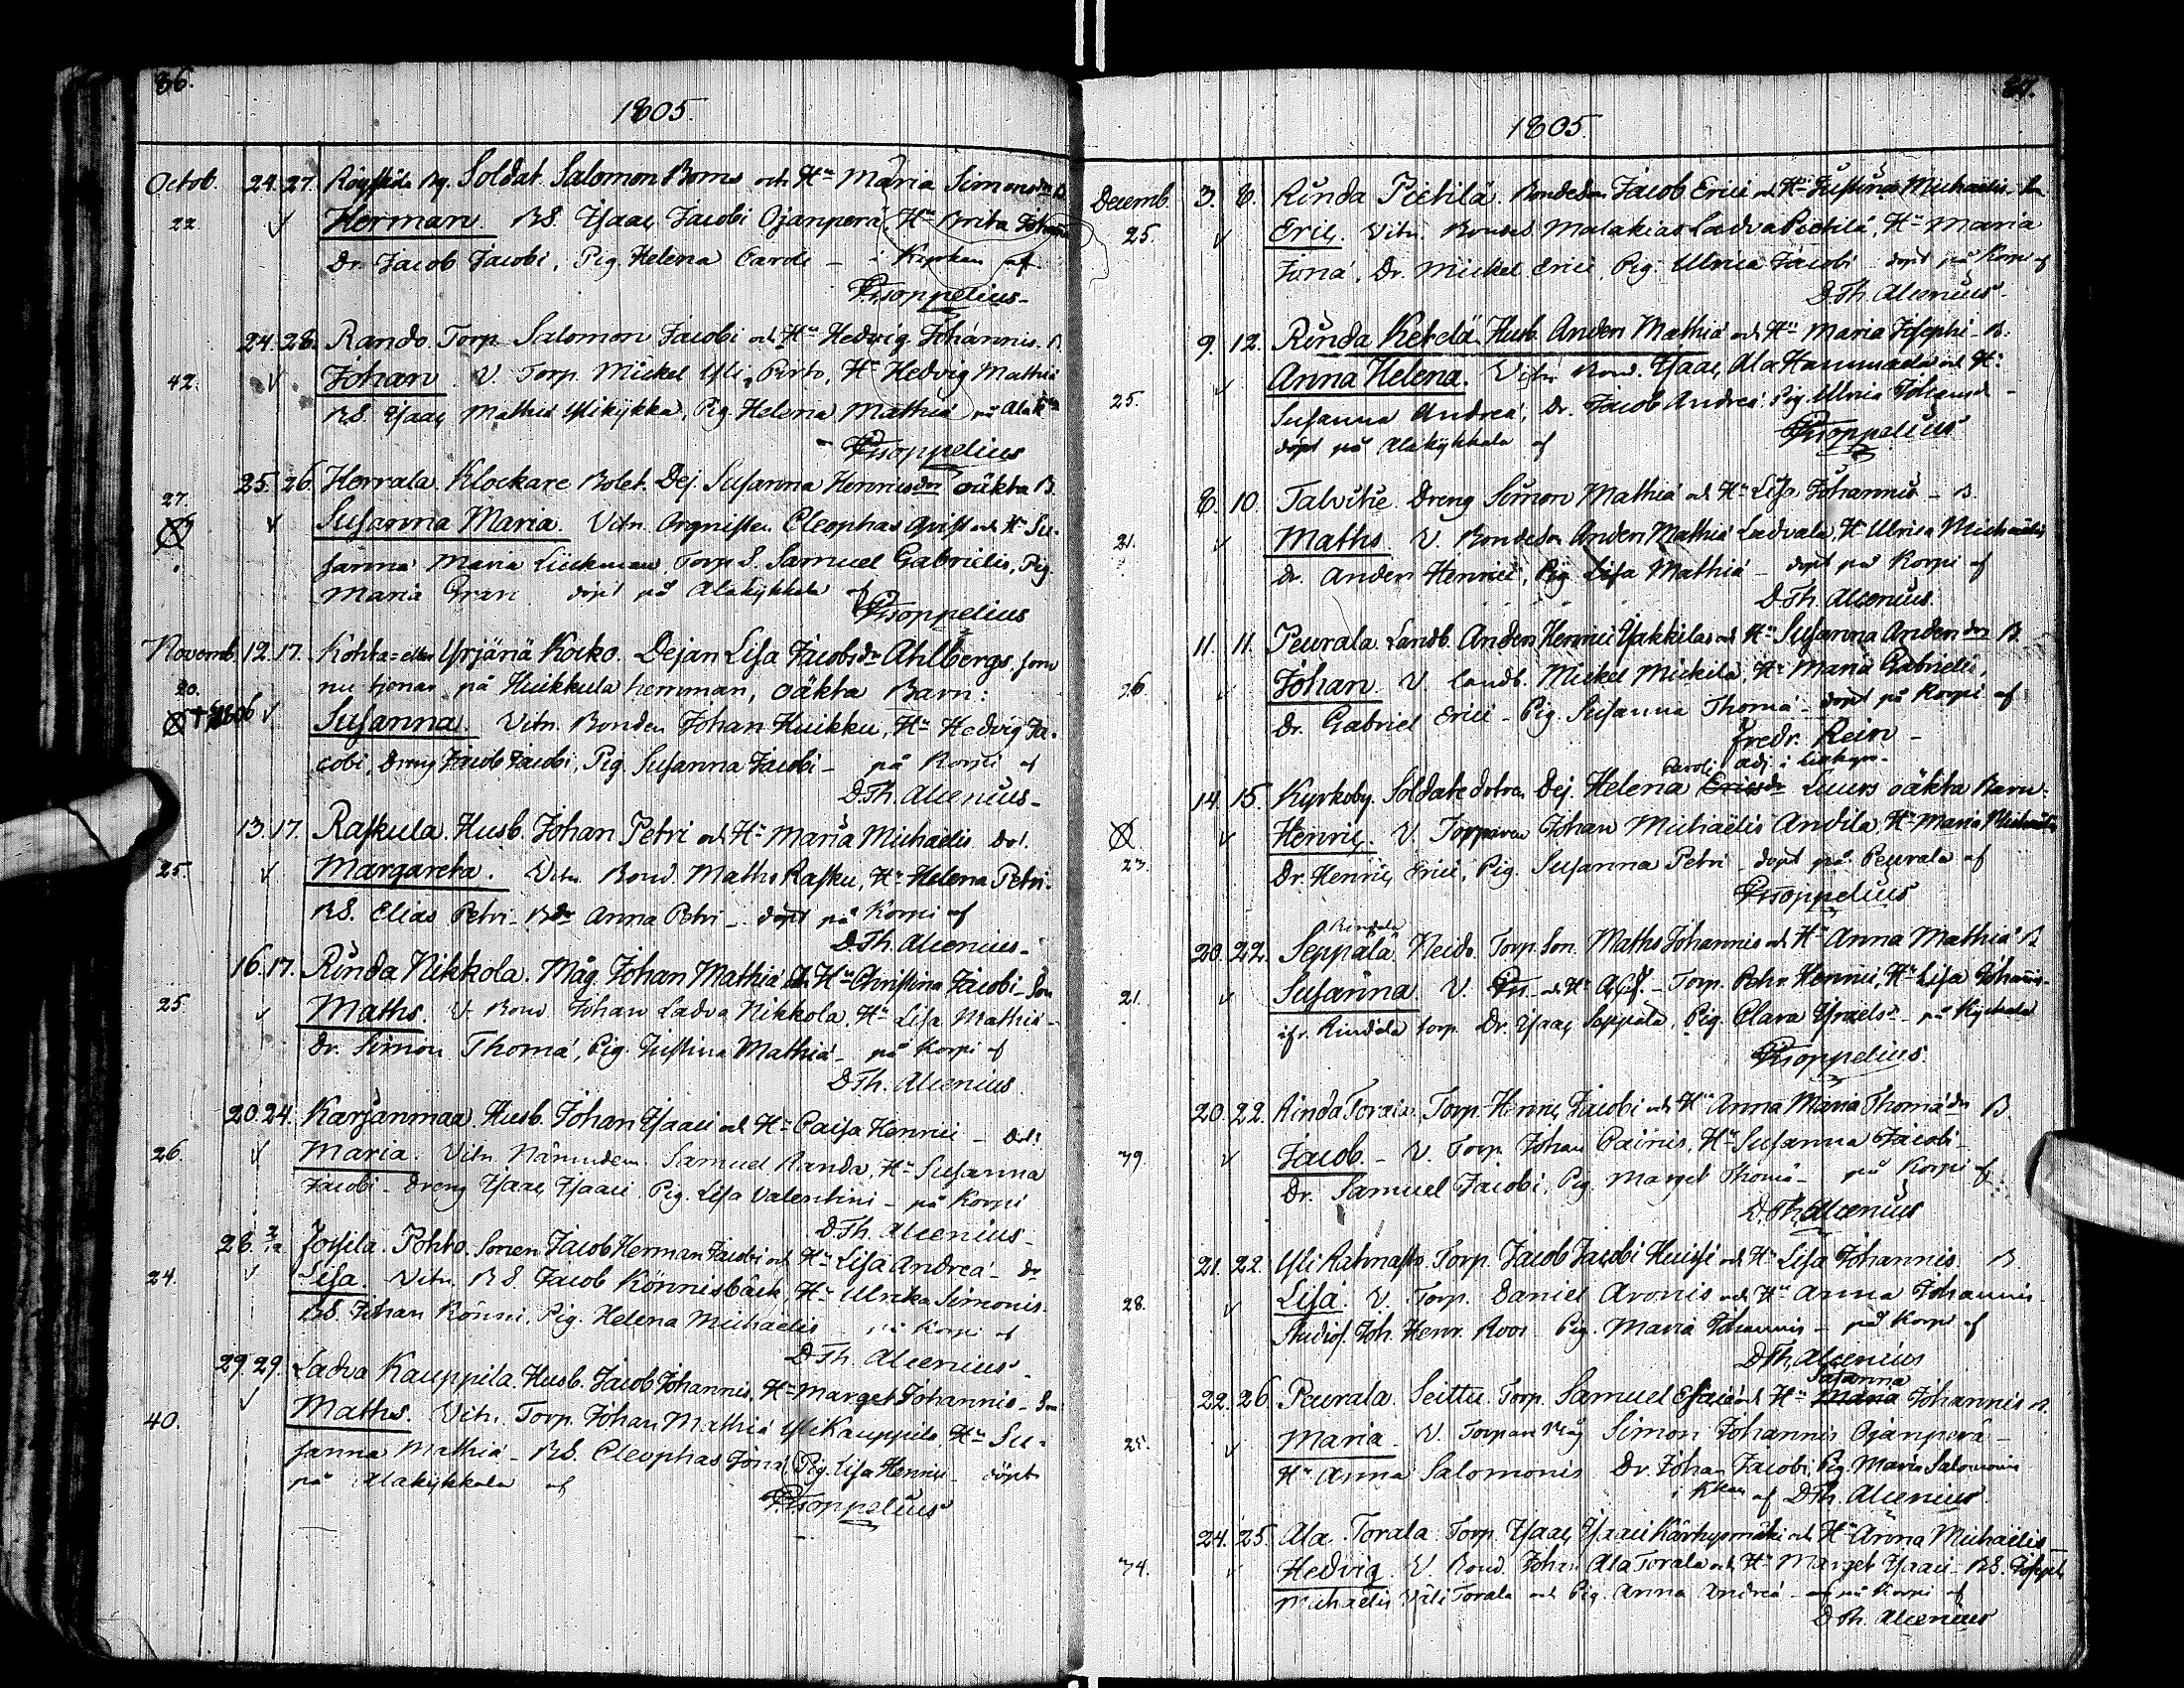 86.
1805.
Octob. 24. 27. By. Soldat Salomon Boms och Hu Maria Simonsdr B.
22. Herman. BS. Isaac Jacobi Ojanperä, Hu Brita Johannis
Dr. Jacob Jacobi, Pig. Helena Caroli – i Kyrkan af
Prsoppelius
24. 28. Rando. Torp. Salomon Jacobi och Hu Hedvig Johannis. B.
42. Johan. V. Torp. Mickel Yli Pirto, Hu Hedvig Mathiæ
BS. Isaac Mathiæ Ylikykka, Pig. Helena Mathiæ på Alak
Prsoppelius
25. 26. Herrala Klockare Bolet. Dej. Susanna Henricsdr oäkta B.
27. Susanna Maria. Vitn. Orgnisten Cleophas Qvist och Hu Su-
sanna Maria Lückman, Torp S. Samuel Gabrielis, Pig.
Maria Gran döpt på Alakykkala af
Prsoppelius
Novemb. 12. 17. Kohta- eller Yrjänä Kocko. Dejan Lisa Jacobsdr Ahlbergs, som
20. nu tjenar på Huikkula hemman, oäkta Barn:
1806 Susanna. Vitn. Bonden Johan Huikku, Hu Hedvig Ja-
cobi, Dreng Jacob Jacobi, Pig. Susanna Jacobi – på Korpi af
D. Th. Alcenius
13. 17. Raskula. Husb. Johan Petri och Hu Maria Michaëlis Dot.
25. Margareta. Vitn. Bond. Maths Rasku, Hu Helena Petri
BS. Elias Petri – Bdr Anna Petri – döpt på Korpi af
D. Th. Alcenius
16. 17. Rinda Nikkola. Måg Johan Mathiæ och Hu Christina Jacobi – Son
25. Maths. V. Bond. Johan Ladva Nikkola, Hu Lisa Mathiæ –
Dr. Simon Thomæ, Pig. Justina Mathiæ – på Korpi af
D. Th. Alcenius
20. 24. Karjanmaa. Husb. Johan Isaaci och Hu Caisa Henrici – Dot.
26. Maria. Vitn. Nämndem. Samuel Randa, Hu Susanna
Jacobi – Dreng Isaac Isaaci, Pig. Lisa Valentini – på Korpi
D. Th. Alcenius
28. 2/12 Jossila. Pohto. Sonen Jacob Herman Jacobi och Hu Lisa Andreæ – dr
24. Lisa. Vitn. BS. Jacob Könnisbäck, Hu Ulrika Simonis
BS. Johan Könni, Pig. Helena Michaëlis på Korpi af
D. Th. Alcenius
29. 29. Ladva Kauppila. Husb. Jacob Johannis, Hu Marget Johannis – Son
40. Maths. Vitn. Torp. Johan Mathiæ Yli Kauppila, Hu Su-
sanna Mathiæ – BS. Cleophas Jonæ, Pig. Lisa Henrici – döpt
på Alakykkala af
Prsoppelius
87.
1805.
Decemb. 3. 8. Rinda Pietilä. Bondeson Jacob Erici och Hu Justina Michaëlis – Bn
25. Eric. Vitn. Bonden Malakias Ladva Pietilä, Hu Maria
Jonæ, Dr. Mickel Erici, Pig. Ulrica Jacobi döpt på Korpi af
D. Th. Alcenius
9. 12. Rinda Ketelä. Husb. Anders Mathiæ och Hu Maria Josephi – B.
25. Anna Helena. Vitn. Bond. Isaac Ala Hannuksela och Hu
Susanna Andreæ, Dr. Jacob Andreæ, Pig. Ulrica Johannis –
döpt på Alakykkala af
Prsoppelius
8. 10. Talvitie. Dreng Simon Mathiæ och Hu Lisa Johannis – B.
21. Maths. V. Bondeson Anders Mathiæ Ladvala, Hu Ulrica Michaëlis
Dr. Anders Henrici, Pig. Lisa Mathiæ – döpt på Korpi af
D. Th. Alcenius
11. 11. Peurala. Landb. Anders Henrici Yakkilas och Hu Susanna Andersdr B.
26. Johan. V. Landb. Mickel Mickilä, Hu Maria Gabrielis,
Dr. Gabriel Erici – Pig. Susanna Thomæ – döpt på Korpi af
Fredr. Rein –
Adj. i
Caroli
14. 15. Kyrkoby. Soldatedotren Dej. Helena Ericsdr Luurs oäkta Barn
23. Henric. V. Torparen Johan Michaëlis Andila, Hu Maria Michaëlis
Dr. Henric Erici, Pig. Susanna Petri – döpt på Peurala af
Prsoppelius
Rindala
20. 22. Seppälä Neido. Torp. Son. Maths Johannis och Hu Anna Mathiæ B.
21. Susanna. V. och Hu – Torp. Petr. Henrici, Hu Lisa Johannis
ifr. Rindala torp. Dr. Isaac Seppälä, Pig. Clara Israelsdr – på Kyckala
Prsoppelius
20. 22. Rinda Torala, Torp. Henric Jacobi och Hu Anna Maria Thomædr B.
79. Jacob – V. Torp. Johan Cainis, Hu Susanna Jacobi –
Dr. Samuel Jacobi, Pig. Marget Thomæ – på Korpi af
D. Th. Alcenius
21. 22. Yli Rahnasto. Torp. Jacob Jacobi Huisi och Hu Lisa Johannis. B.
28. Lisa. V. Torp. Daniel Aronis och Hu Anna Johannis –
Studios. Joh. Henr. Roos – Pig. Maria Johannis – på Korpi af
D. Th. Alcenius
Susanna
22. 26. Peurala. Seittu. Torp. Samuel Esaiæ och Hu Maria Johannis B.
25. Maria. V. Torpare Måg Simon Johannis Ojanperä –
Hu Anna Salomonis Dr. Johan Jacobi, Pig. Maria Salomonis
i Kkan af D. Th. Alcenius
24. 25. Ala Torala Torp. Isaac Isaaci Kärhysmäki och Hu Anna Michaëlis –
74. Hedvig. V. Bond. Johan Ala Torala och Hu Marget Isaaci – BS. Joseph
Michaëlis Väli Torala och Pig. Anna Andreæ – på Korpi af
D. Th. Alcenius